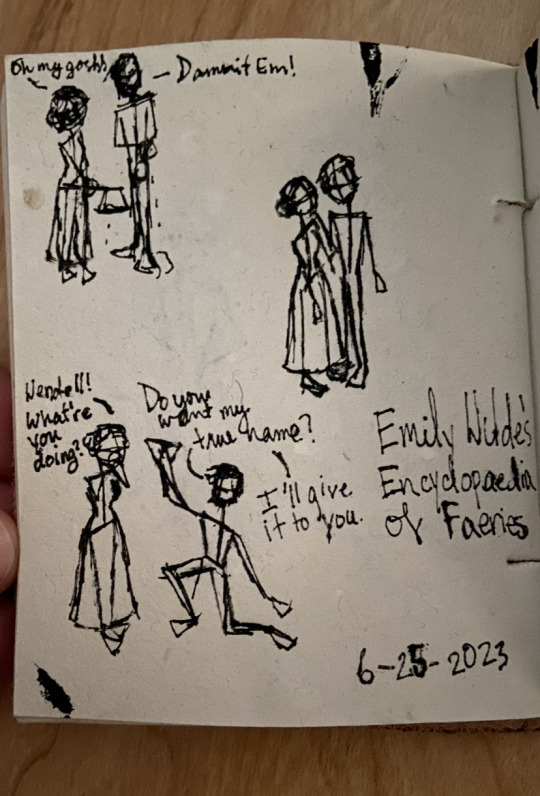 Oh my gosh!
Dammit Em!
Wendell!
What're
you
doing?
Do you
want my
true name?
I'll give
it to you.
Emily Wilde's
Encyclopaedia
of Faeries
6-25-2023